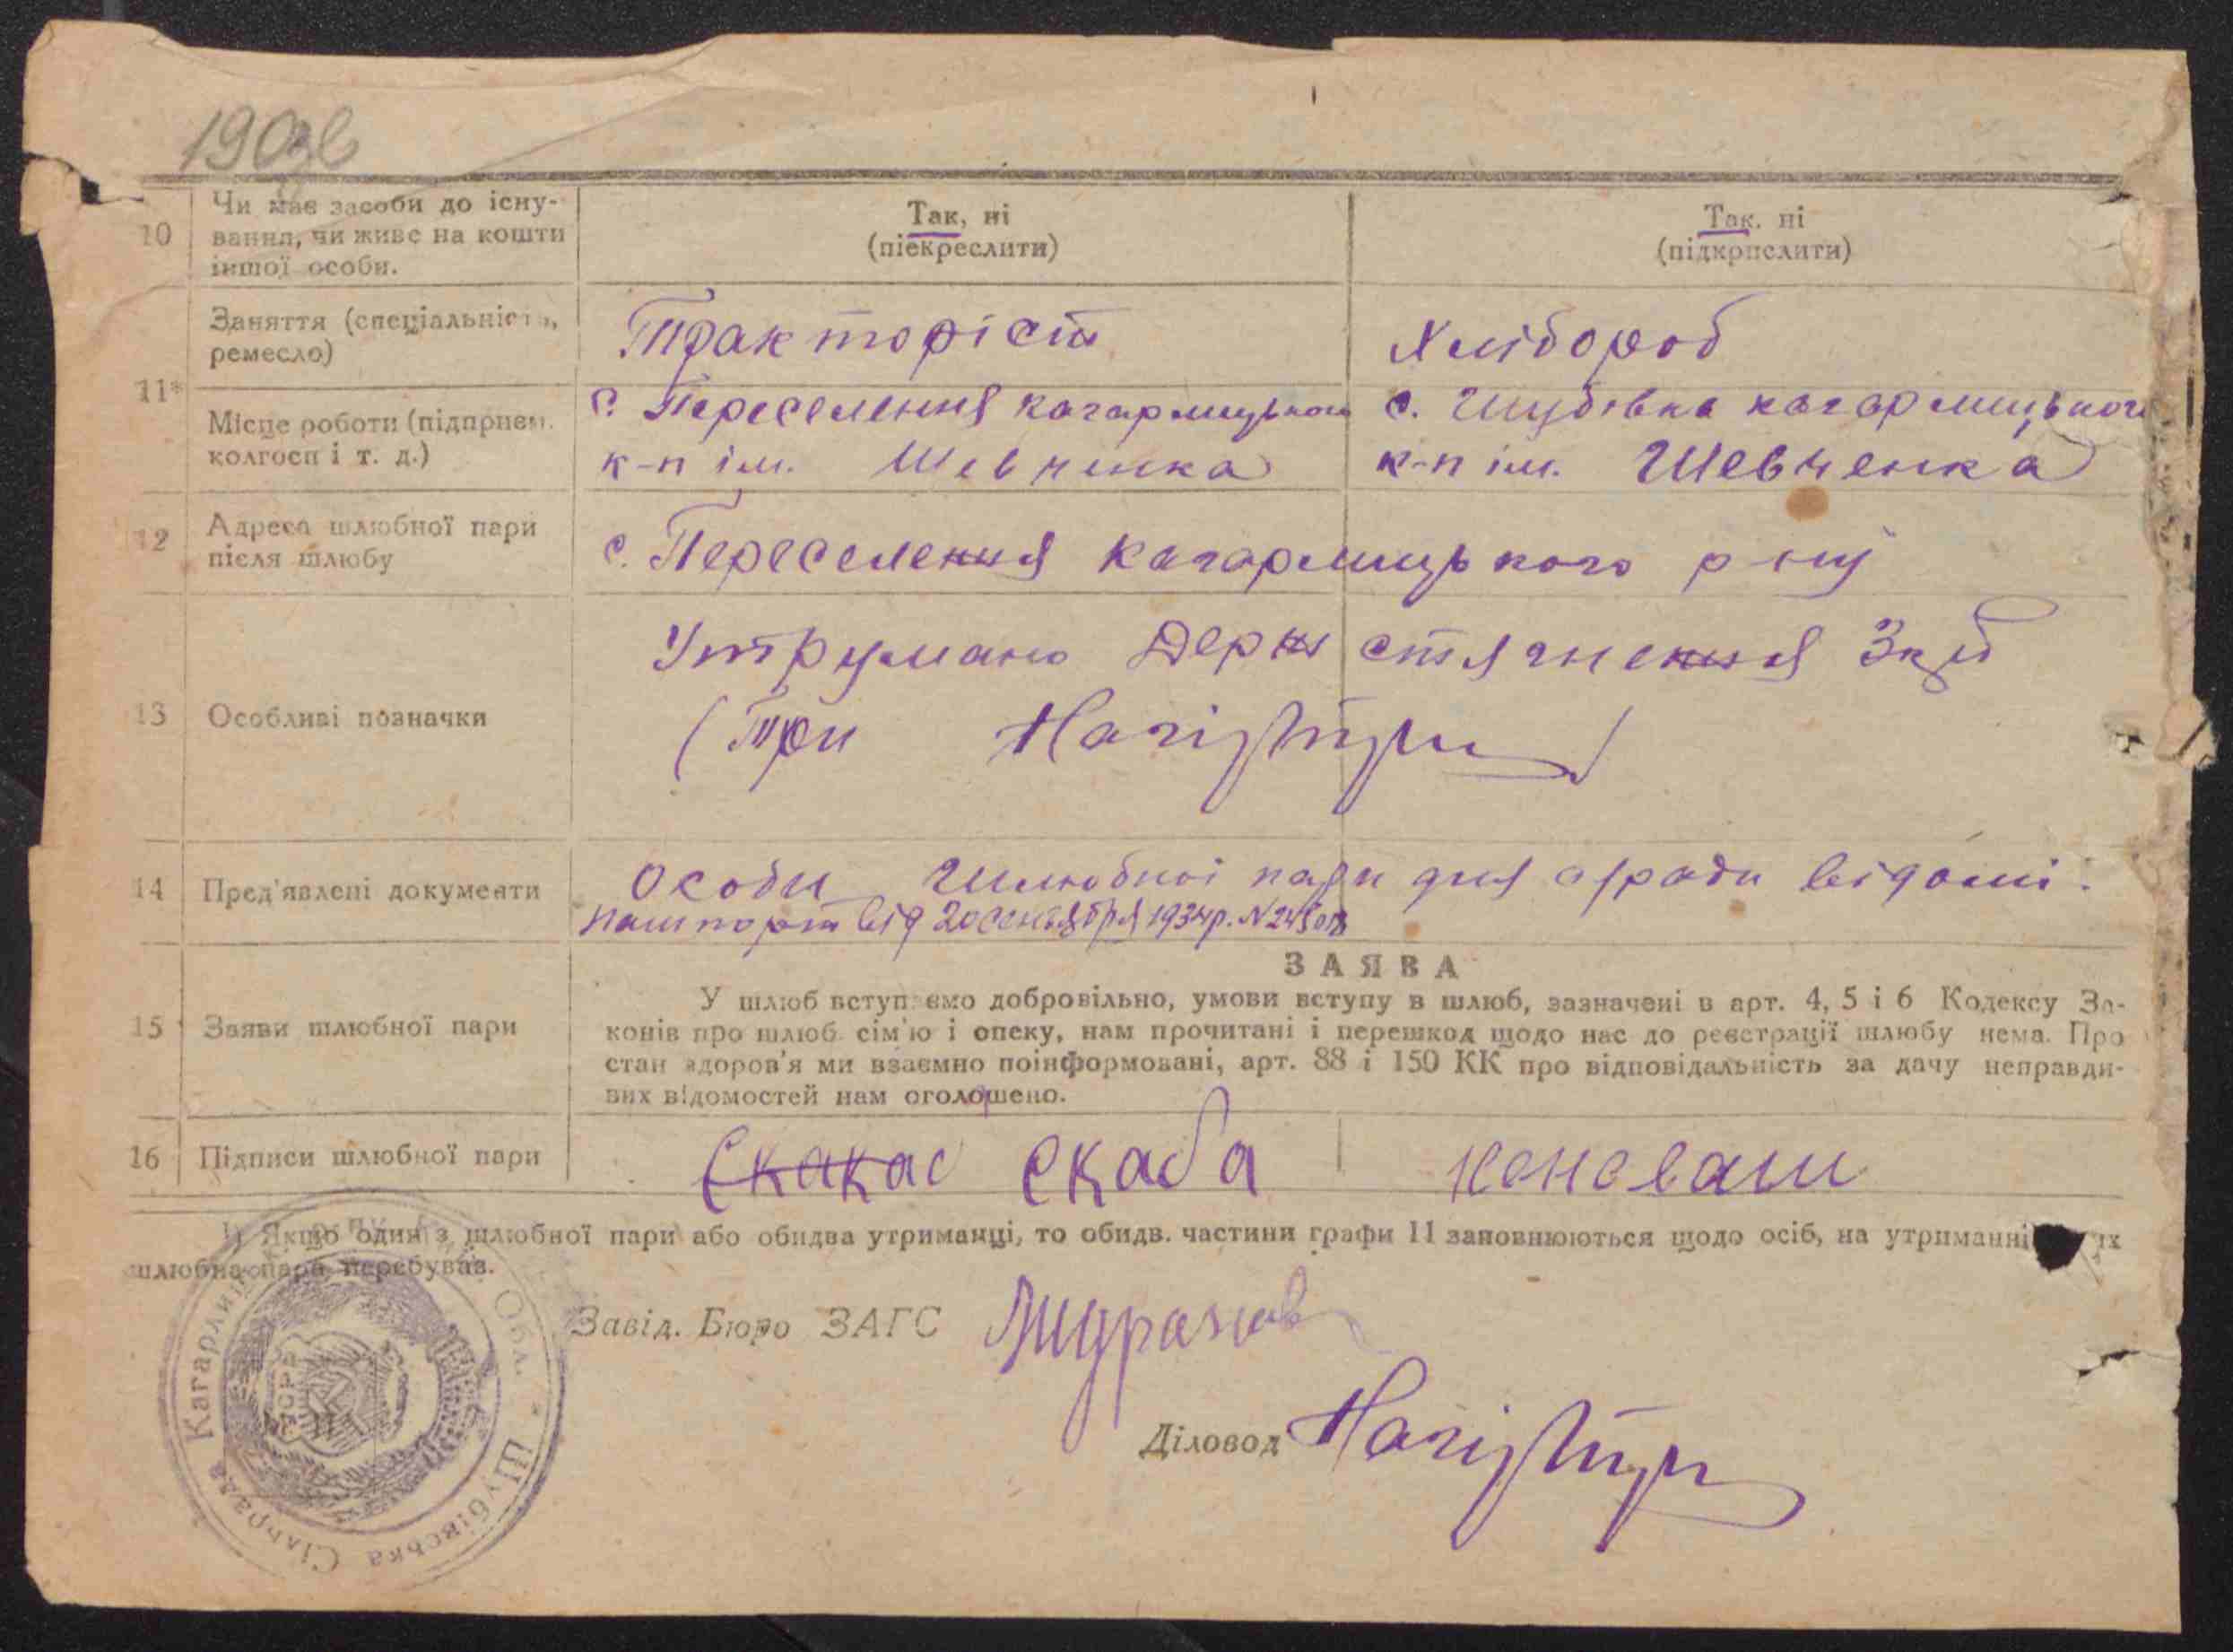 10 Чи має засоби до існу-
вання, чи живе на кошти
іншої особи.
Так, ні
(піекреслити)
Так. ні
(підкрпслити)
Заняття (спеціальність,
ремесло)
Тракторіст
Хлібороб
11*
Місце роботи (підприєм.
колгосп і т. д.)
с. Переселення кагарлицького
к-п ім. Шевченка
с. Шубівка кагарлицького
к-п ім. Шевченка
12 Адреса шлюбної пари
після шлюбу
с. Переселення Кагарлицького р-ну
13 Особливі позначки
Утрумано Держ стягнення 3 крб
(Три
14 Пред'явлені документи
Особи шлюбної пари для с/ради відомі.
пашпорт від 20 сентября 1934р. N
ЗАЯВА
15 Заяви шлюбної пари
У шлюб вступаємо добровільно, умови вступу в шлюб, зазначені в арт. 4, 5 і 6 Кодексу За-
конів про шлюб сім'ю і опеку, нам прочитані і перешкод щодо нас до реєстрації шлюбу нема. Про
стан здоров'я ми взаємно поінформовані, арт. 88 і 150 КК про відповідальність за дачу неправди-
вих відомостей нам оголошено.
16 Підписи шлюбної пари
Скакас Скаба
Коноваш
1) Якщо один з шлюбної пари або обидва утриманці, то обидв. частини графи 11 заповнюються щодо осіб, на утриманні їх
шлюбна пара перебуває.
Завід. Бюро ЗАГС
Діловод
Шубівська Сільрада Кагарлицьк. Обл.
УСРР